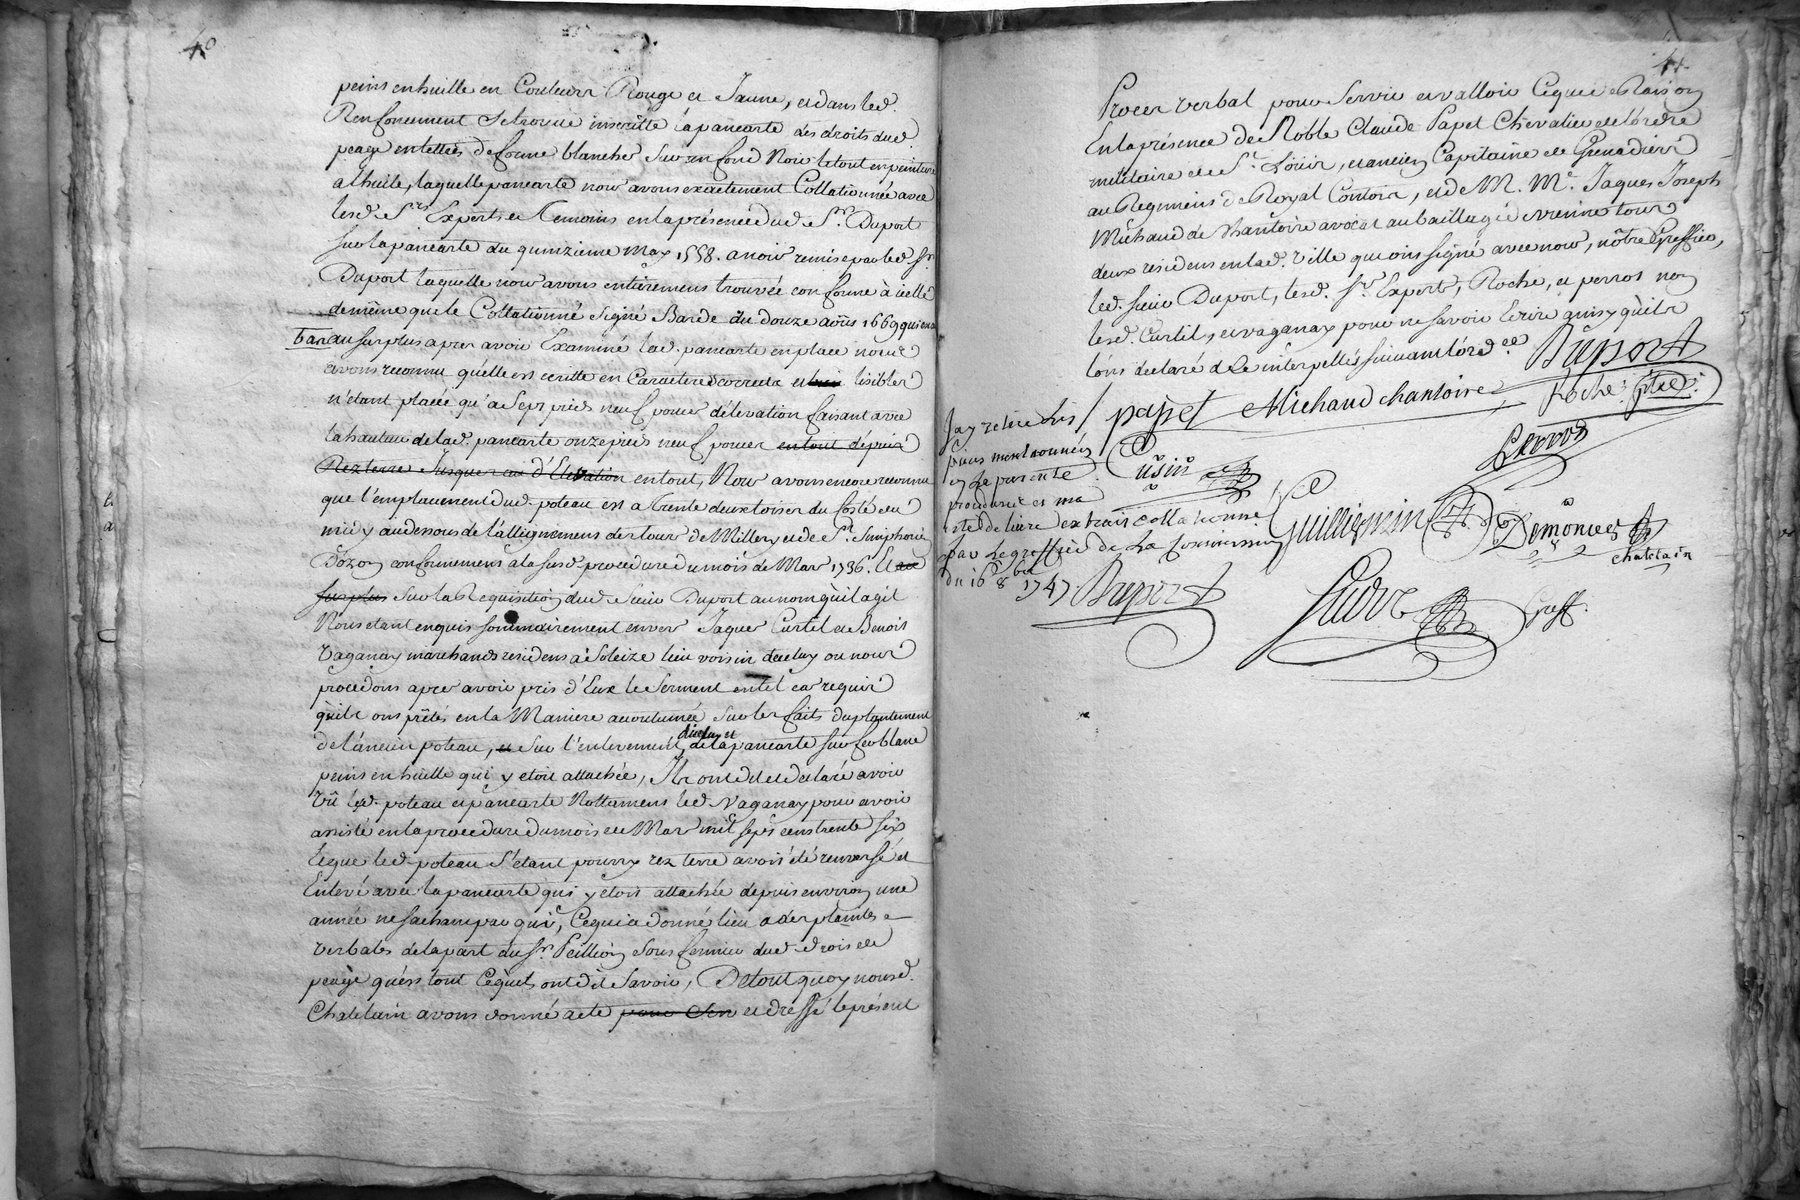 40
peins en huille en Couleurs Rouge et Jaune, et dans led.
Renfoncement Se trouve inscritte la pancarte des droits dud.
peage en lettres de forme blanche Sur un fond Noir le tout en peinture
a l'huile, laquelle pancarte nous avons exactement Collationnée avec
lesd. Srs. Experts et Temoins en la présence dud. Sr. Duport
sur la pancarte du quinzieme May 1558. a nous remise par led. Sr.
Duport laquelle nous avons entierement trouvée conforme à icelle
de même que le Collationné Signé Barde du douze aoüs 1669 qui en
bas au surplus apres avoir Examiné lad. pancarte en place nous
avons reconnu quélle est ecritte en Caractere correcte et bien lisibles
n'etant placée qu'a Sept pieds neuf pouces délevation faisant avec
la hauteur de lad. pancarte onze pieds neuf pouces en tout dépuis
Rez terre Jusques au d'Elevation en tout, Nous avons encore reconnu
que l'emplacement dud. poteau est a trente deux toises du Costé du
midy au dessous de l'allignement des tours de Millery et de St. Simphorien
Dózon conformement a la susd. procedure du mois de Mars 1736. Et au
surplus Sur la Requisition dud. Sieur Duport au nom qu'il agit
Nous etant enquis sommairement envers Jaques Curtil et Benois
Vaganay marchands residens à Soleize lieu voisin decluy ou nous
procedons apres avoir pris d'Eux le Serment en tel cas requis
qu'ils ons prêtés en la Maniere accoutumée Sur les faits du plantement
de l'áncien poteau, et Sur l'enlevement dicluy et de la pancarte sur fer blanc
peins en huille qui y etoit attachée, Ils ont dit et declaré avoir
vû led. poteau et pancarte Nottament led. Vaganay pour avoir
assisté en la procedure du mois de Mars mil sept cens trente Six
Et que led. poteau S'étant pourry rez terre avoit été renversé et
Enlevé avec la pancarte qui y etoit attachée depuis environ une
année ne sachant par qui, Ce qui a donné lieu a des plaintes
verbales de la part du Sr. Peillion Sous fermier dud. droit de
peage quést tout Ce quils ont dit Savoir, De tout quoy nousd.
Chatelain avons donné acte pour Servir et dressé le présent
41
Procez verbal pour Servir et valloir Ce que de Raison
En la présence de Noble Claude Papet Chevalier de l'órdre
militaire de St. Loüis, et ancien Capitaine de Grenadiers
au Regiment de Royal Contois, et de M. Me. Jaques Joseph
Michaud de Chantoire avocat au baillage de vienne tous
deux residens en lad. ville qui ons signé avec nous, nôtre Greffier,
led. sieur Duport, lesd. Srs. Experts, Roche, et perros non
lesd. Curtil, et vaganay pour ne savoir Ecrire ainsy qu'ils
lóns déclaré de ce interpellés suivant lórdce. Duport
papet Michaud chantoire Roche
Perros
J'ay retiré les
pieces mentionnées
en la presente
procedure et ma
ete delivré extrait collationné
par le greffier de la Commission
du 16e. 8bre
1747. Duport
Cusin
Guilliermin
Demónces
chatelain
Greff.